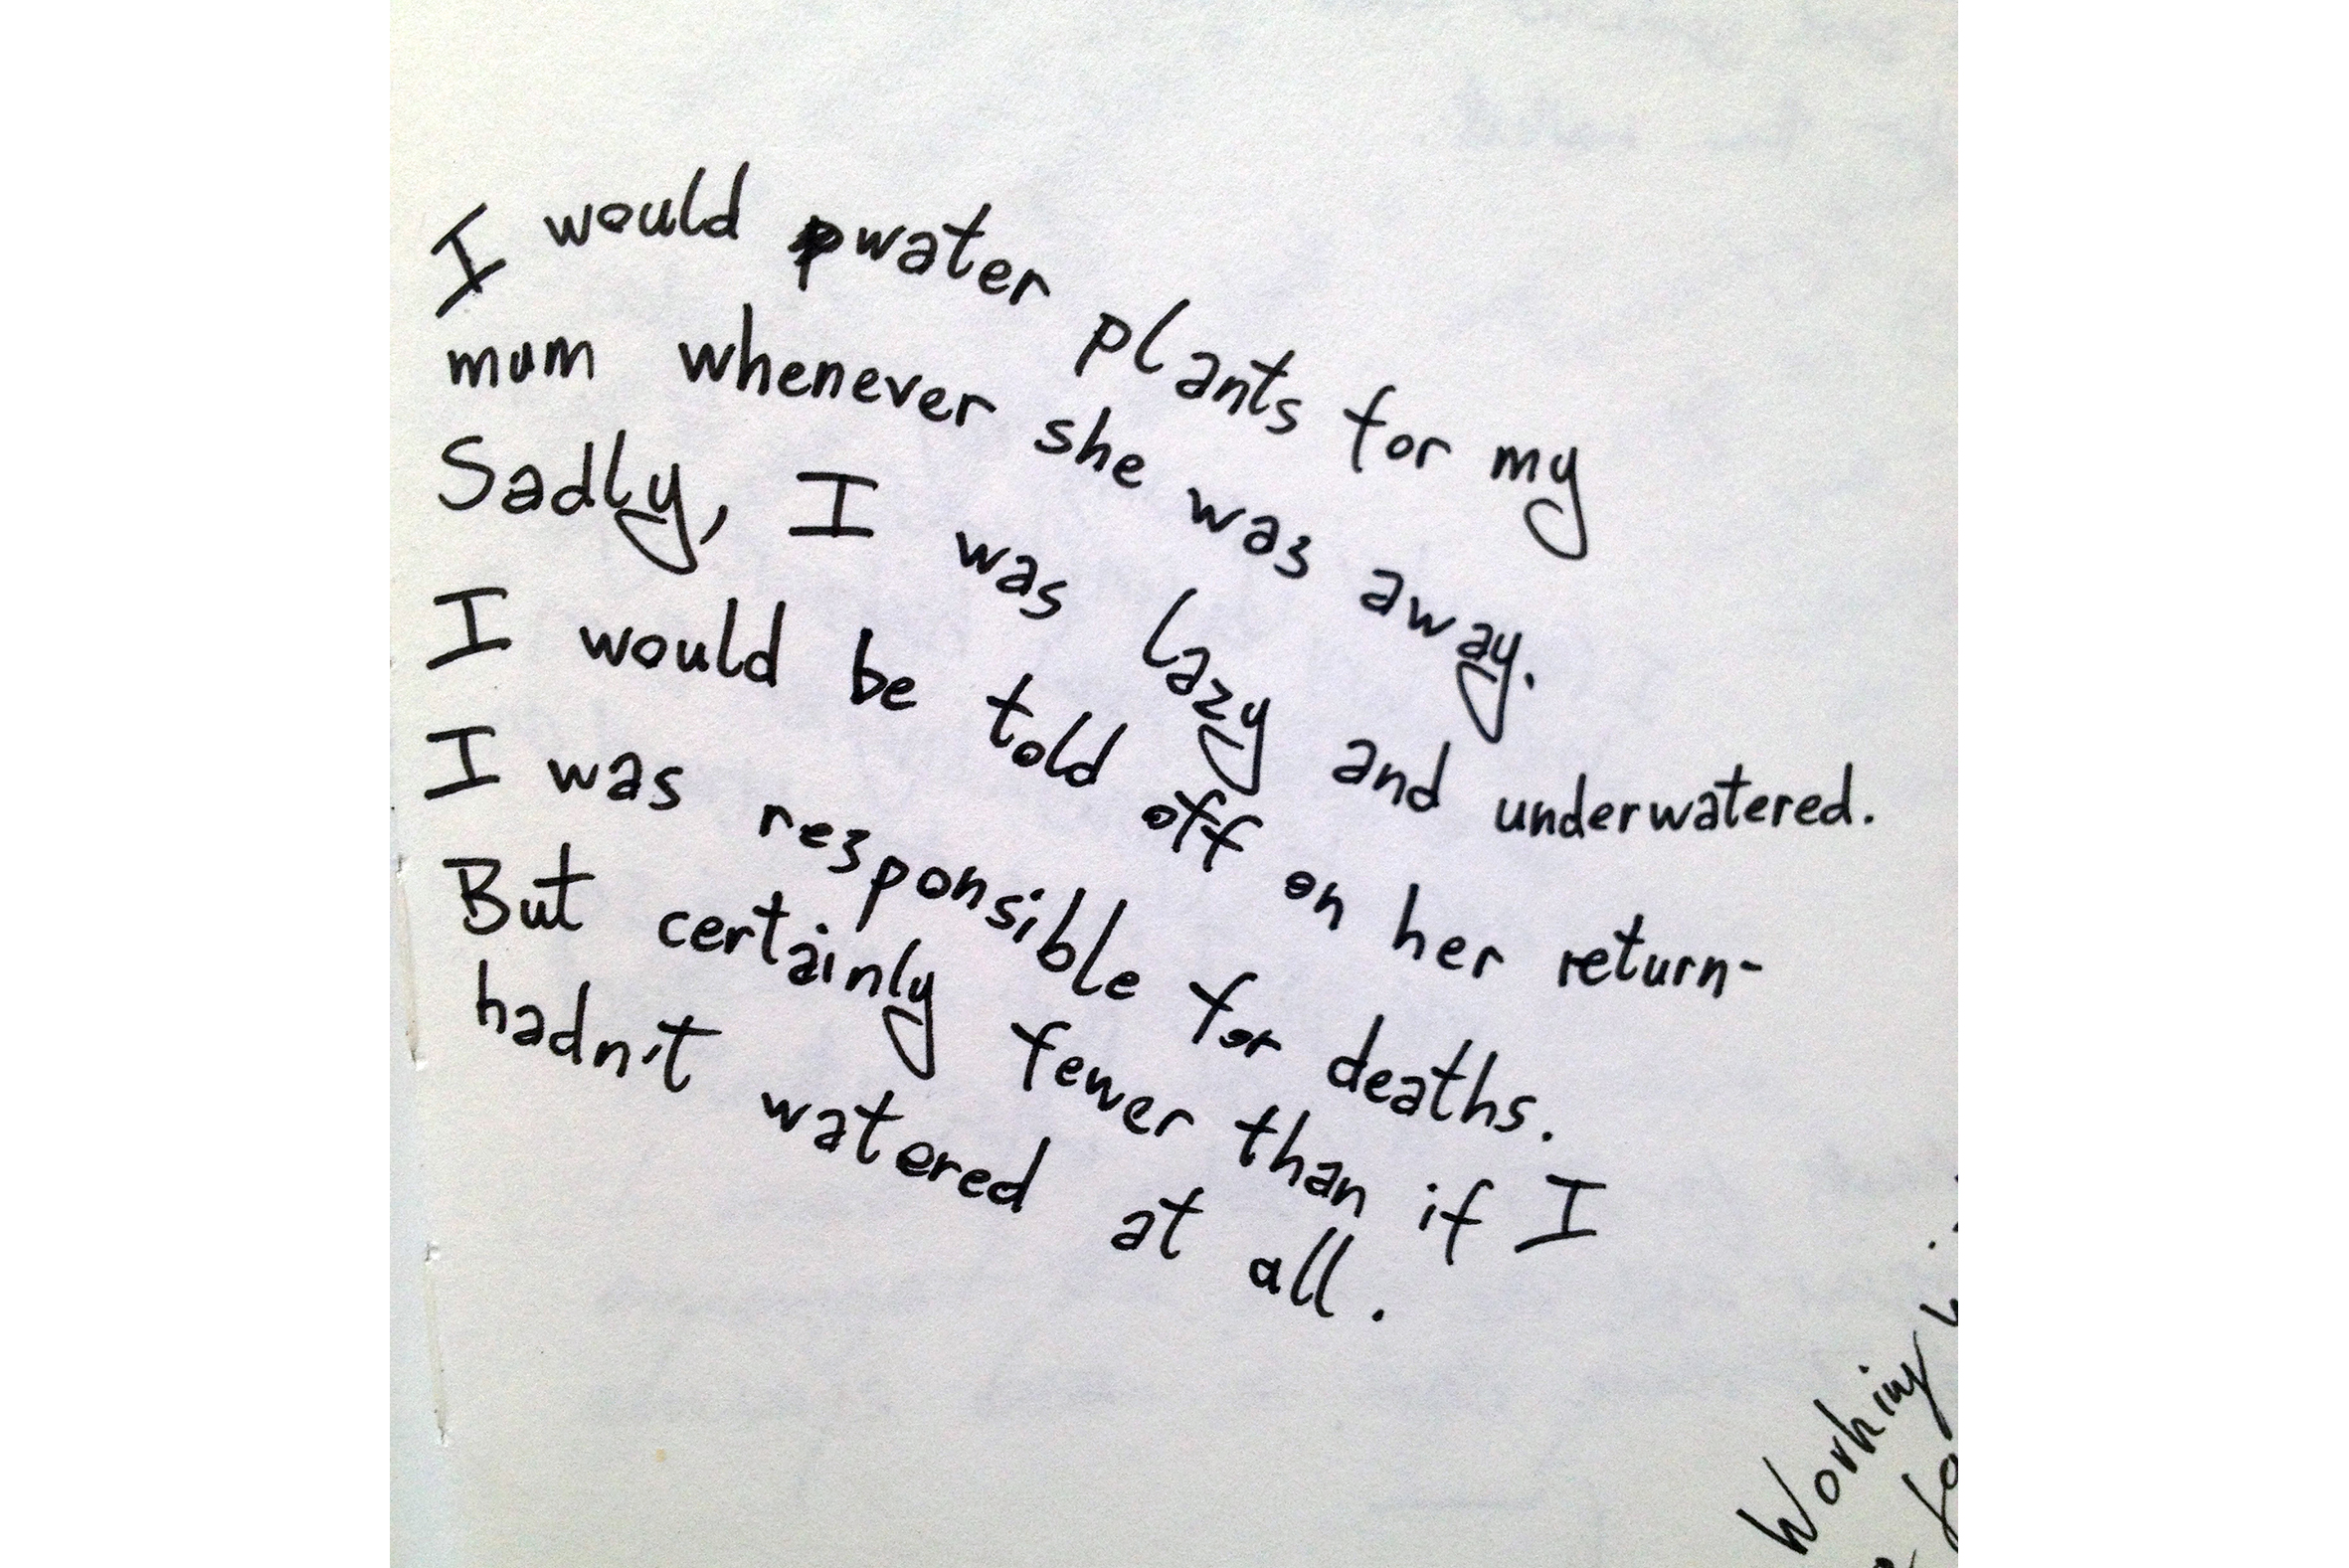 I would water plants for my
mum whenever she was away.
Sadly, I was lazy and underwatered.
I would be told off on her return-
I was responsible for deaths.
But certainly fewer than if I
hadn't watered at all.
Working